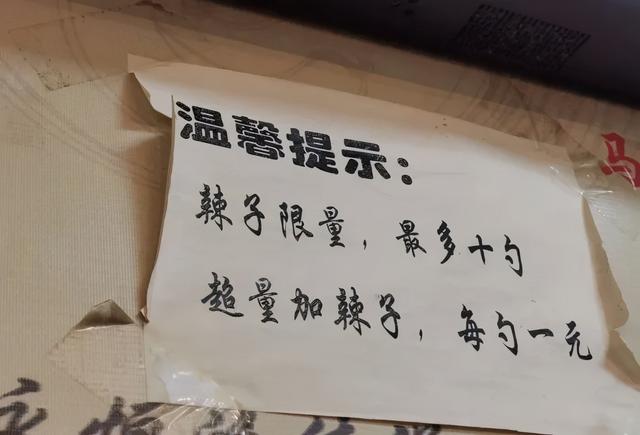 温馨提示：
辣子限量，最多十勺
超量加辣子，每勺一元
马